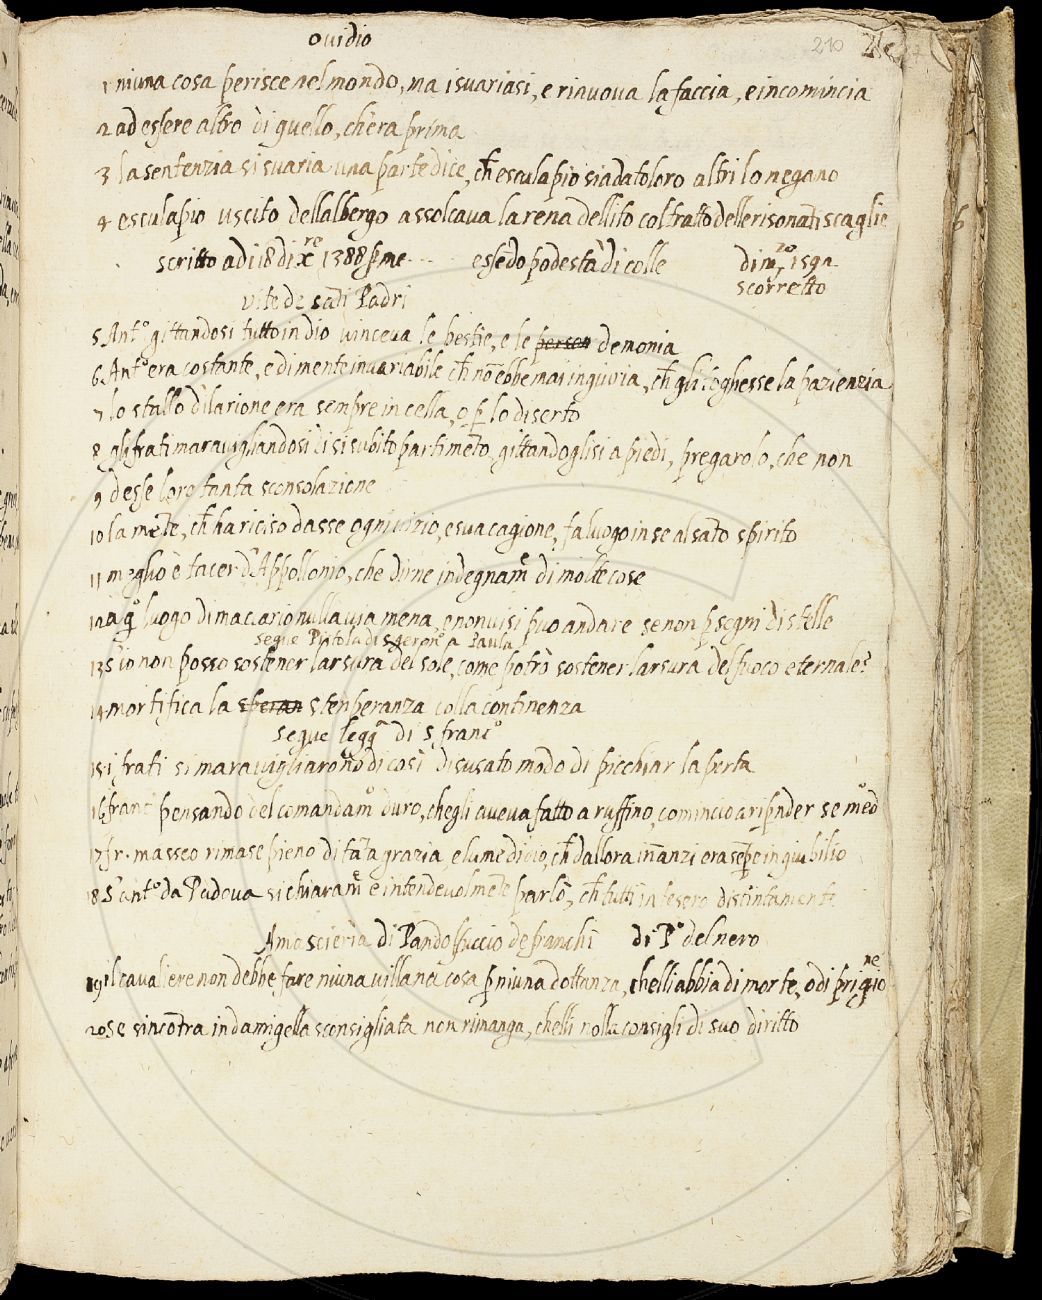 ovidio
210
1 niuna cosa perisce nel mondo, ma isvariasi, e rinuova la faccia, e incomincia
2 ad essere altro di quello, ch'era prima
3 la sentenzia si svaria una parte dice, ch̄ esculapio sia dato loro altri lo negano
4 esculapio uscito dell albergo assolcava la rena del lito col tratto delle risonāti scaglie
scritto a di 18 di x̄re 1388 p me essēdo podestà di colle
scorretto
vite de sā di Padri
5 Antº gittandosi tutto in dio vinceva le bestie, e le demonia
6 Antº era costante, e di mente invariabile ch̄ nō ebbe mai ingiuria, ch̄ gli toghesse la pazienzia
7 lo stallo d'ilarione era senpre in cella, o p̄ lo diserto
8 gli frati maravigliandosi di si subito partimēto, gittandoglisi a piedi, pregarolo, che non
9 desse loro tanta sconsolazione
10 la mēte, ch̄ ha riciso da sse ogni vizio, e sua cagione, fa luogo in se al sāto spirito
11 meglio è tacer d'Appollonio, che dirne indegnam̄e di molte cose
12 a qº luogo di maccario nulla via mena, e non vi si può andare se non p̄ segni di stelle
segue Pistola di S geronº a Paula
13 S'io non posso sostener l'arsura del sole, come potrò sostener l'arsura del fuoco eternale?
14 mortifica la stenperanza colla continenza
segue legḡ di S franº
15 i frati si maravigliaroño di così disusato modo di picchiar la porta
16 franº pensando del comandamº duro, ch egli aveva fatto a ruffino, cominciò a rip̄nder se medº
17 fr. masseo rimase pieno di tāta grazia, e lume di dio, ch̄ d allora inānzi era sēpre in giubilio
18 S antº da Padova si chiaram̄e e intendevolmēte parlò, ch̄ tutti intesero distintamente
di Pº del nero
19 il cavaliere non debbe fare niuna villana cosa p̄ niuna dottanza, ch elli abbia di morte, o di prigione
20 se s'incōtra in damigella sconsigliata non rimanga, ch elli nolla consigli di suo diritto